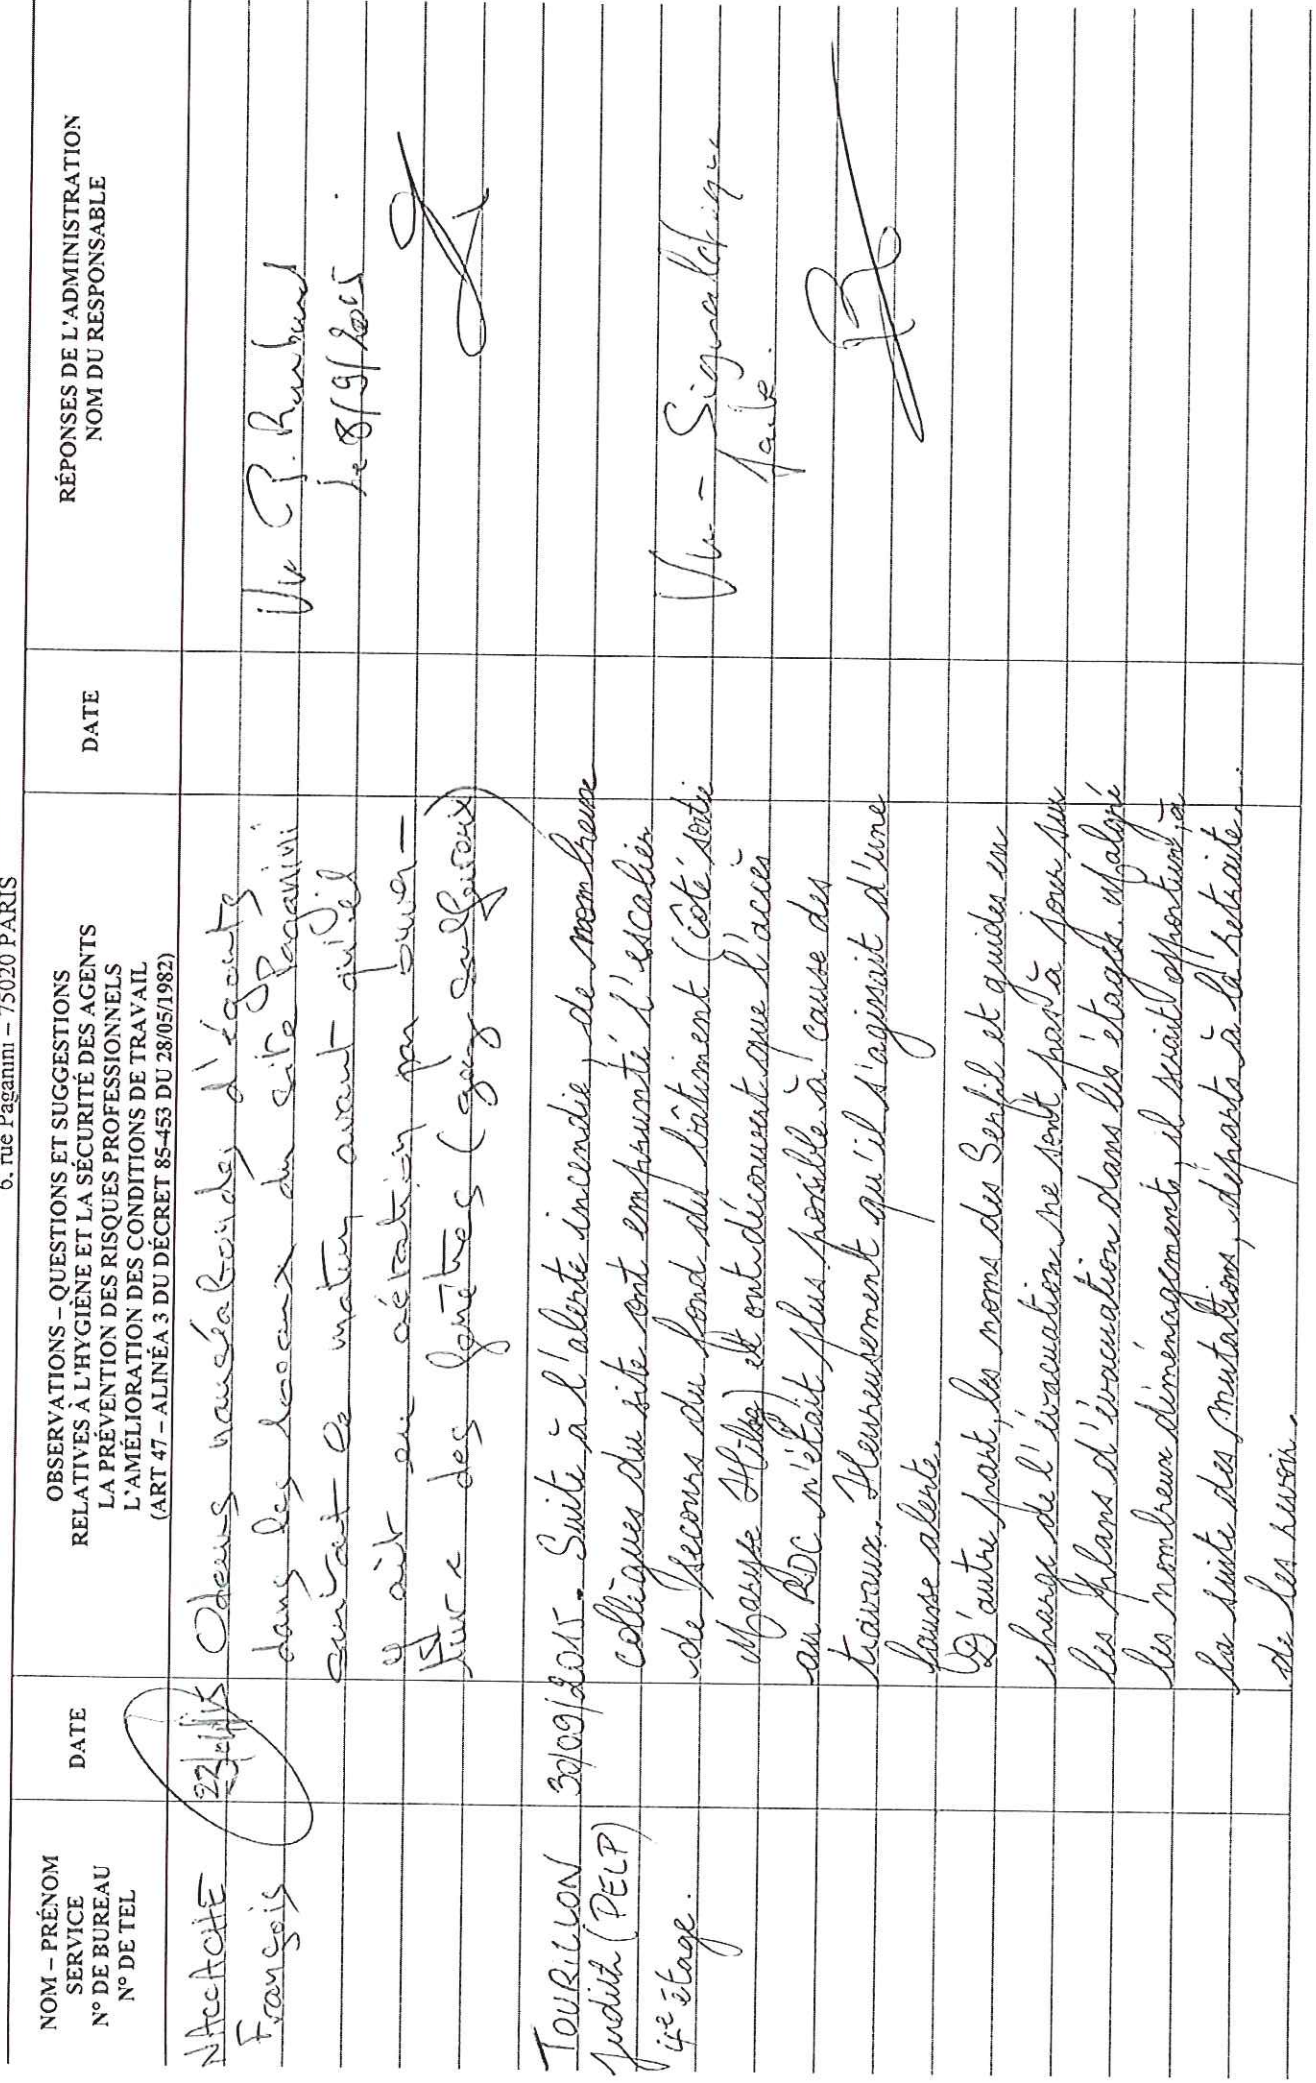 6, rue Paganini – 75020 PARIS
NOM – PRÉNOM
SERVICE
N° DE BUREAU
N° DE TEL
DATE
OBSERVATIONS – QUESTIONS ET SUGGESTIONS
RELATIVES À L'HYGIÈNE ET LA SÉCURITÉ DES AGENTS
LA PRÉVENTION DES RISQUES PROFESSIONNELS
L'AMÉLIORATION DES CONDITIONS DE TRAVAIL
(ART 47 – ALINÉA 3 DU DÉCRET 85-453 DU 28/05/1982)
DATE
RÉPONSES DE L'ADMINISTRATION
NOM DU RESPONSABLE
NACCACHE
François
Odeurs nauséabondes d'égouts
dans les locaux du site Paganini
ce matin avant qu'il
y ait eu aération par ouver–
ture des fenêtres (gaz sulfureux)
Vu
le 8/9/2015.
TOURILLON
Judith (PELP)
4e étage.
30/09/2015.
Suite à l'alerte incendie, de nombreux
collègues du site ont emprunté l'escalier
de secours du fond du bâtiment (côté sortie
Maryse Hilsz) et ont découvert que l'accès
au RDC n'était plus possible à cause des
travaux. Heureusement qu'il s'agissait d'une
fausse alerte.
D'autre part, les noms des Serfil et guides en
charge de l'évacuation ne sont pas à jour sur
les plans d'évacuation dans les étages. Malgré
les nombreux déménagements, il serait opportun, à
la suite des mutations, départs à la retraite...
de les revoir.
Vu – Signalétique
faite.